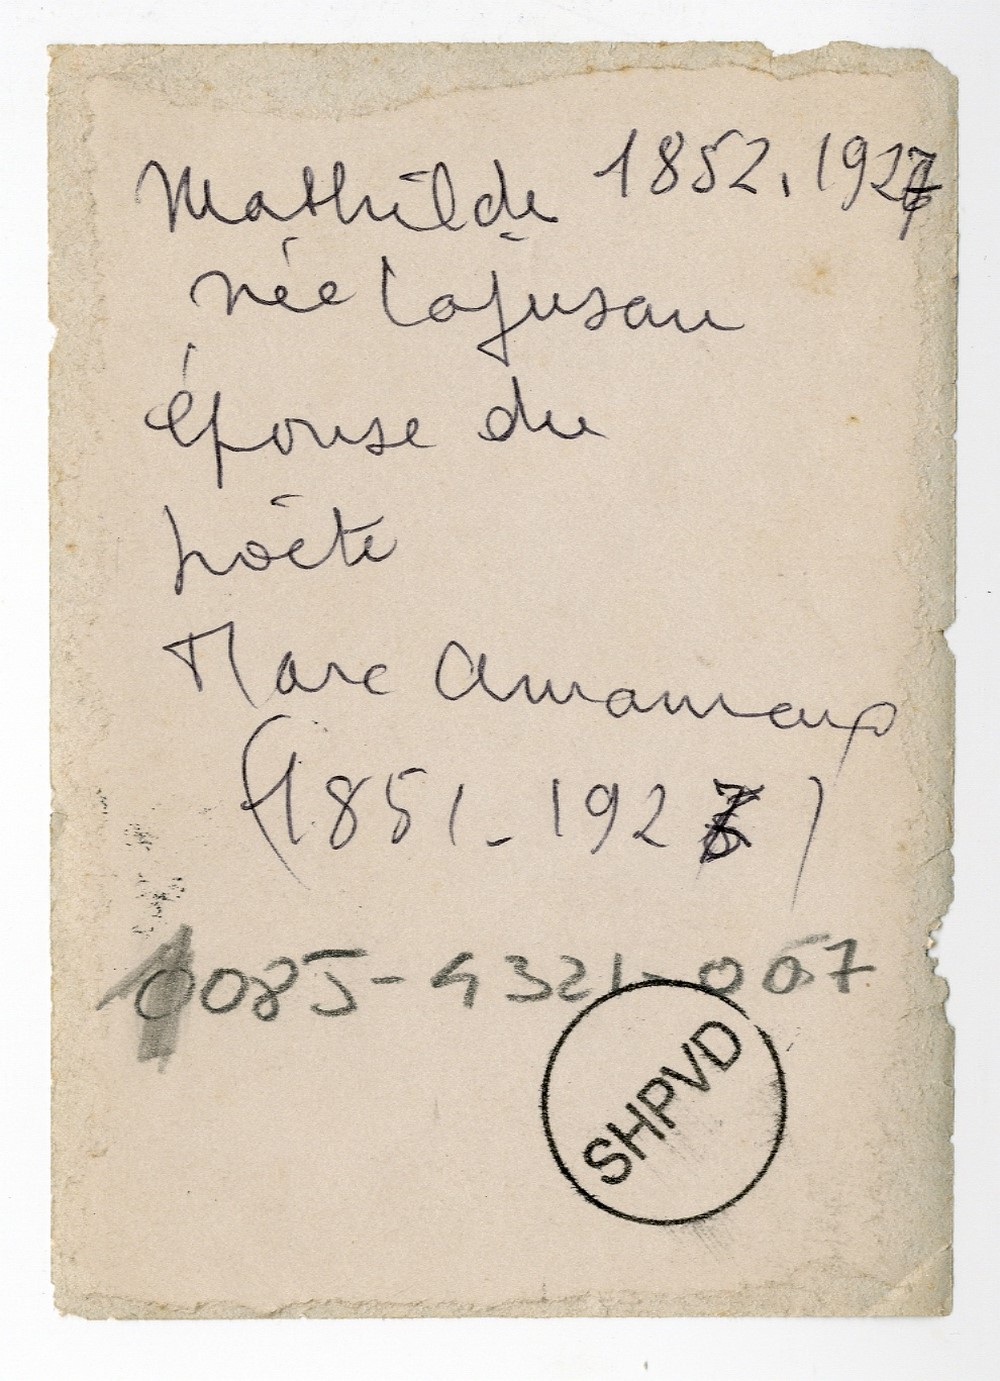 Mathilde 1852.1927
née Lajusan
épouse du
poète
Marc Amanieux
(1851-1926)
0085-4321-007
SHPVD